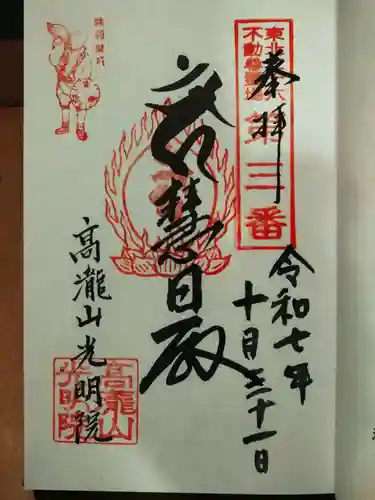 奉拝
東北
不動尊霊場
第三番
令和七年
十月三十一日
慧日殿
高瀧山光明院
高龍山
光明院